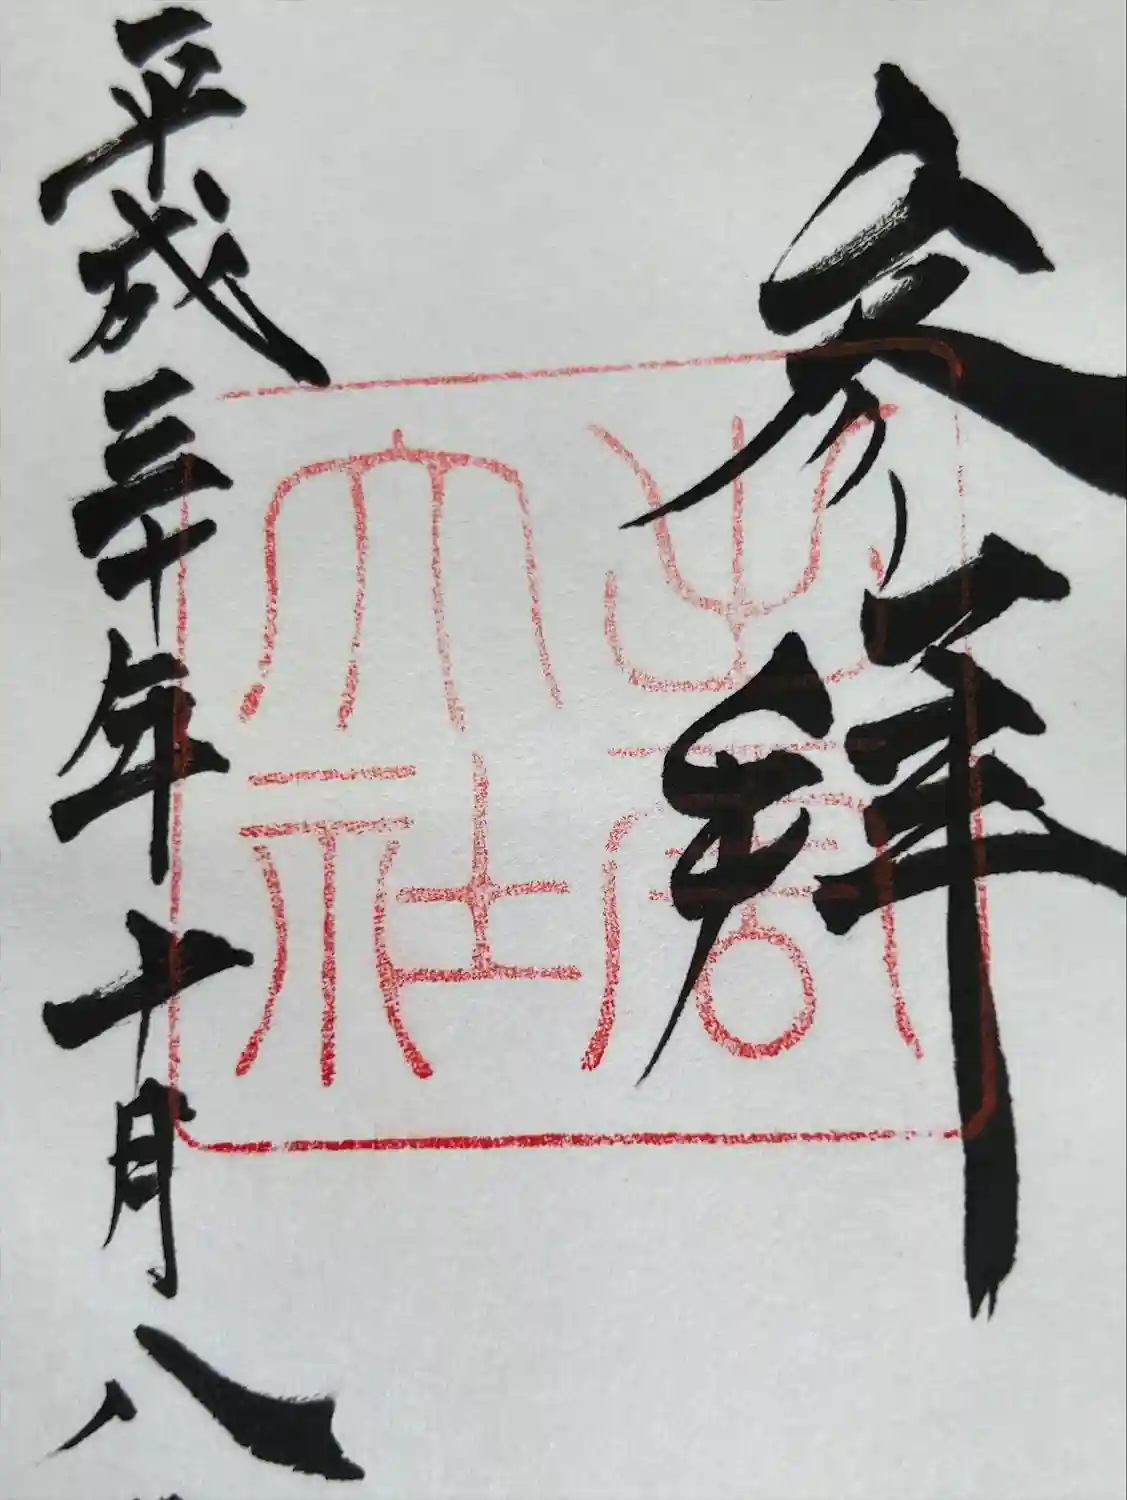 参拜
出雲
大社
平成三十年十月八